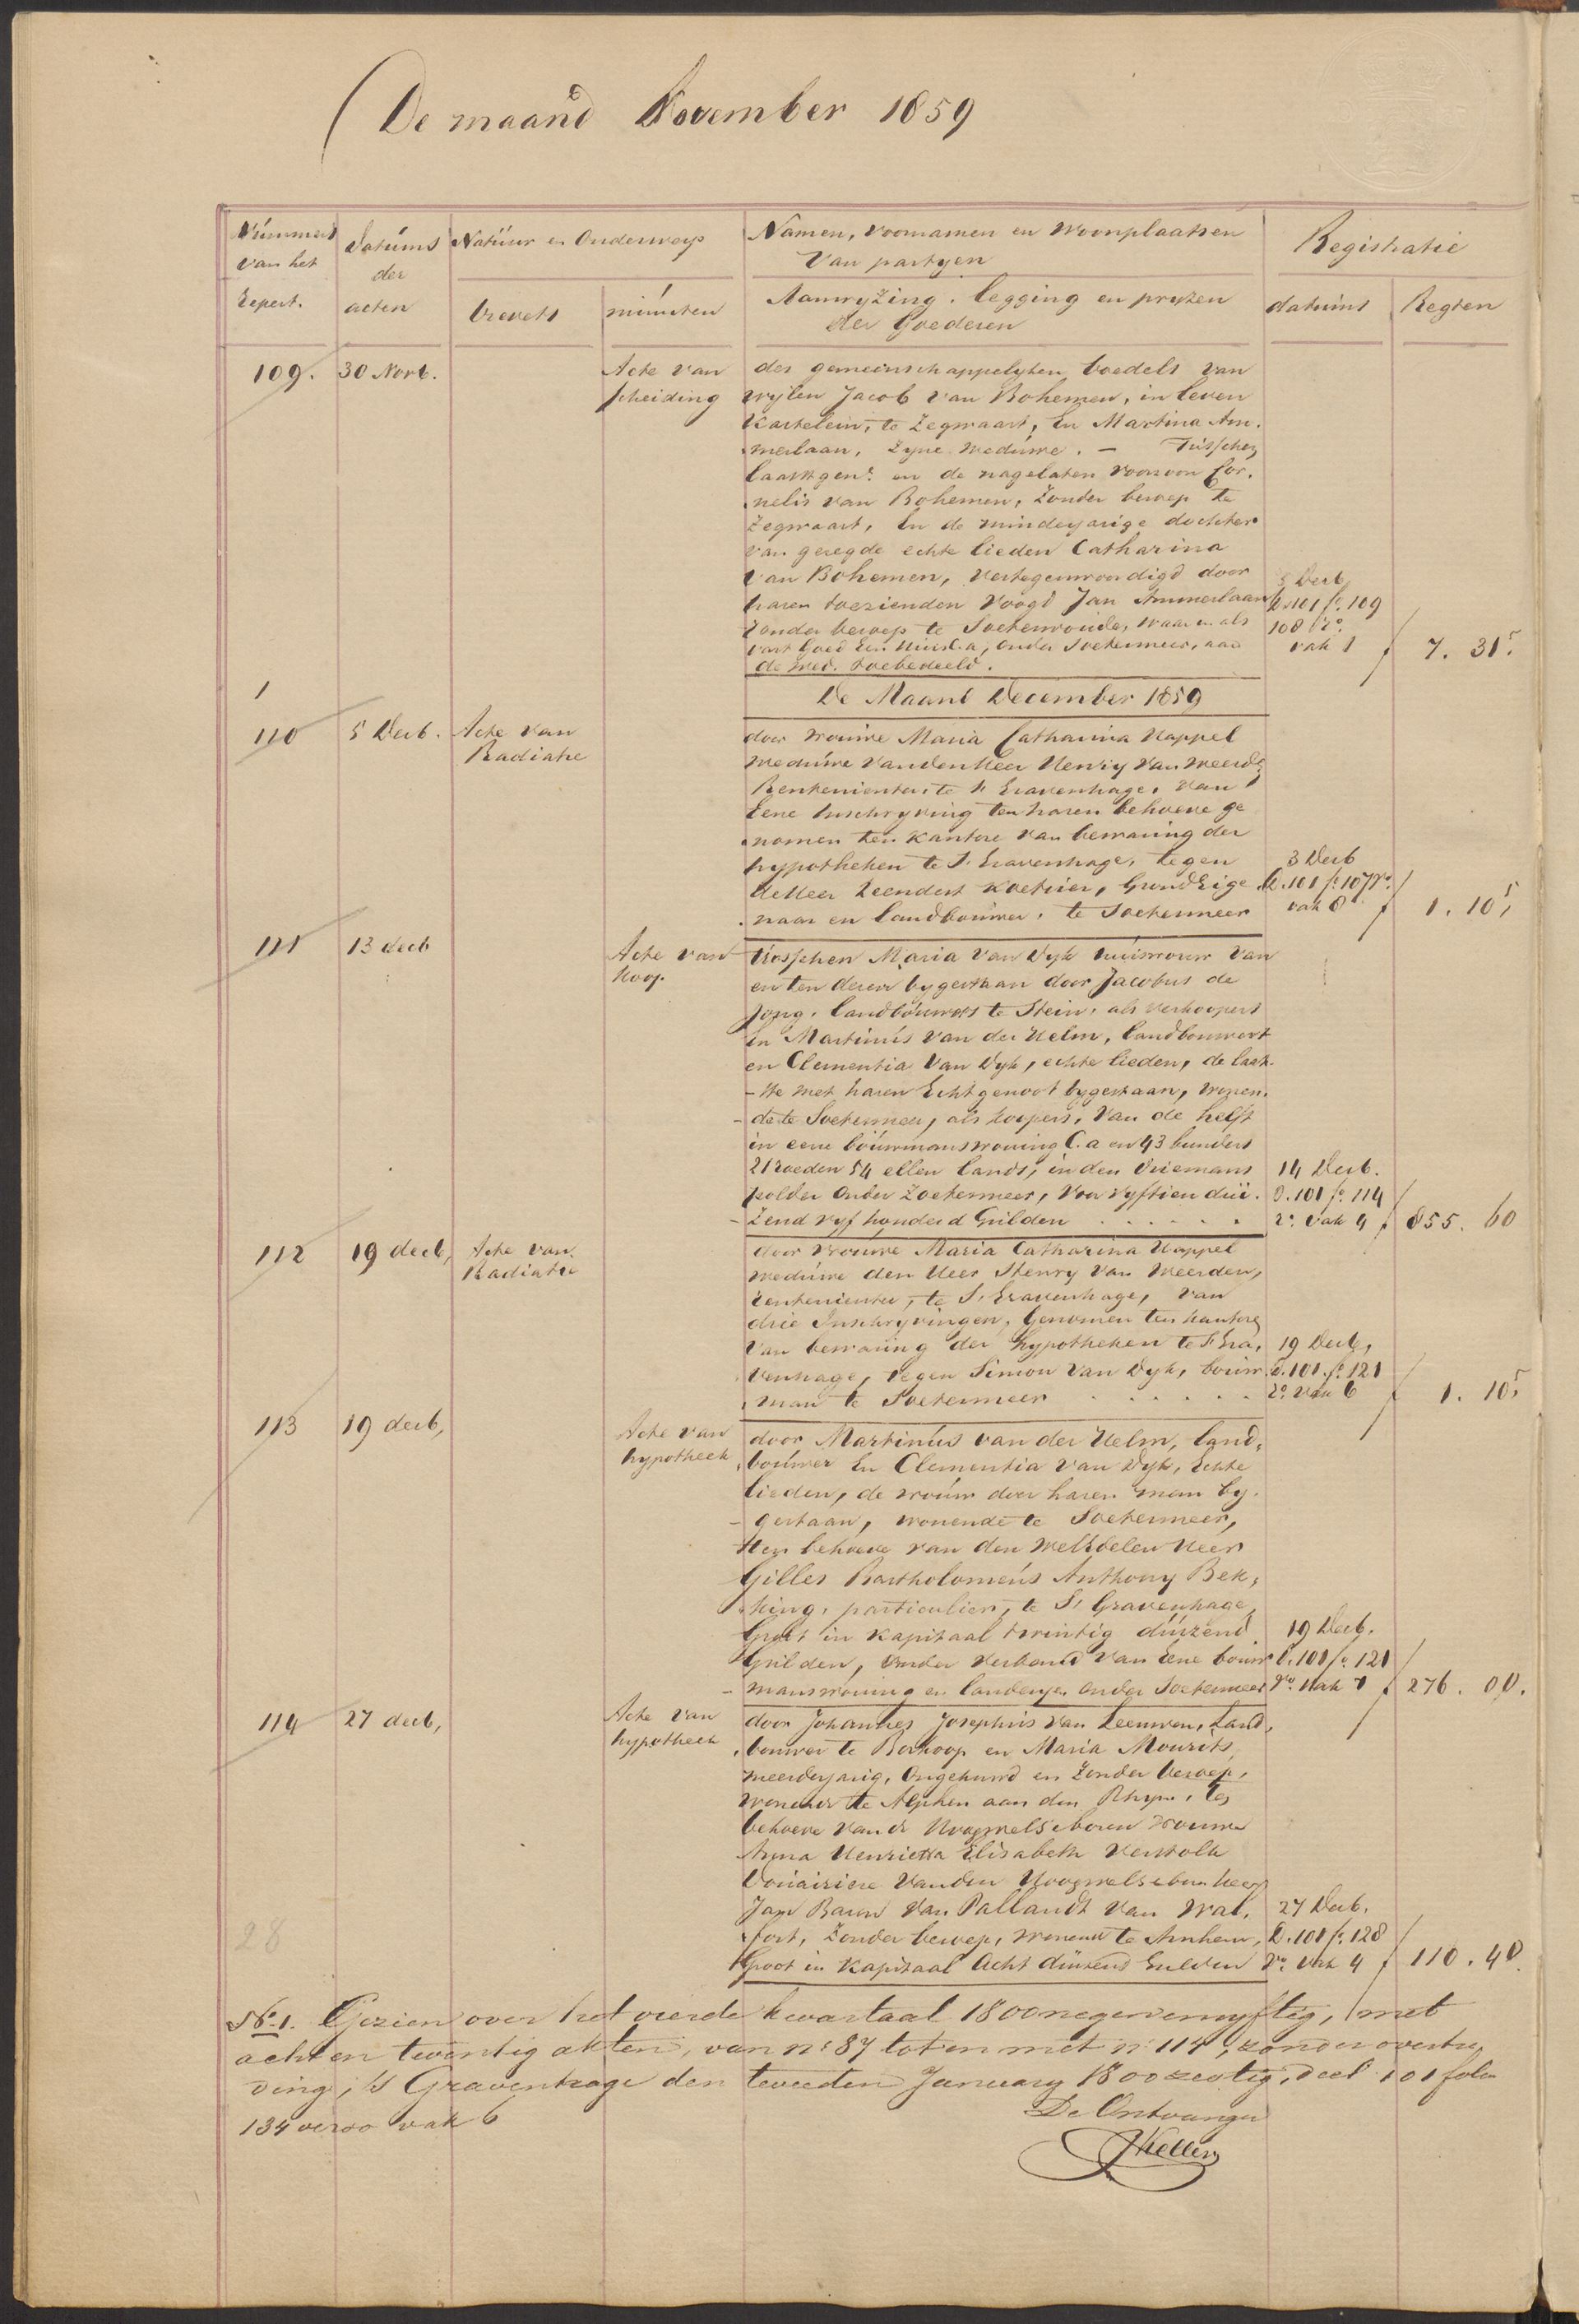 De maand November 1859
Nummers van het Repert.
Datums der acten
Natuur en Onderwerp
brevets
minuten
Namen, voornamen en Woonplaatsen
Van partyen
Aanwyzing, legging en pryzen
der Goederen
Registratie
datums
Regten
109. 30 Novb. Acte van scheiding
des gemeenschappelyken boedels van
wijlen Jacob van Bohemen, in leven
Kastelein, te Zegwaart, En Martina Am-
merlaan, Zyne weduwe. — Tusschen
laatstgend. en de nagelaten voorzoon Cor-
nelis van Bohemen, Zonder beroep te
Zegwaart, En de minderjarige dochter
van gezegde echte lieden Catharina
van Bohemen, vertegenwoordigd door
haren toezienden Voogd Jan Ammerlaan
Zonder beroep te Soetermeer, waarin als
vast Goed Een Huis C.a, onder Soetermeer, aan
de wed. toebedeeld.
5 Decb
D. 101 fo. 109
108 Vo.
vak 1 f 7. 31 5
1
De Maand December 1859
110 5 Decb. Acte van Radiatie
door vrouwe Maria Catharina Happel
weduwe van den Heer Henry van Weerden
Rentenierster, te 's Gravenhage, van
Eene Inschryving ten haren behoeve ge
nomen ten Kantore van bewaring der
hypotheken te 's Gravenhage, tegen
de Heer Leendert Koetsier, Grond Eige-
naar en landbouwer, te Soetermeer
3 Decb
D. 101 fo. 107 Vo.
vak 8 f 1. 10 5
111 13 decb Acte van Koop
tusschen Maria van Dyk huisvrouw van
en ten dezen bygestaan door Jacobus de
Jong, landbouwers te Stein, als verkoopers
En Martinus van der Helm, landbouwer
en Clementia van Dyk, echte lieden, de laat-
ste met haren Echtgenoot bygestaan, wonen-
de te Soetermeer, als koopers, van de helft
in eene bouwmanswoning C.a en 43 bunders
21 roeden 54 ellen lands, in den Driemans
polder Onder Zoetermeer, Voor Vyftien dui-
zend vyf honderd Gulden
14 Decb.
D. 101 fo. 114
Vo. Vak 4 f 855. 60
112 19 decb, Acte van Radiatie
door vrouwe Maria Catharina Happel
weduwe den Heer Henry van Weerden,
rentenierster, te 's Gravenhage, van
drie Inschryvingen, Genomen ten Kantore
van bewaring der hypotheken te 's Gra-
venhage, tegen Simon van Dyk, bouw-
man te Soetermeer
19 Decb,
D. 101. fo. 121
Vo. vak 6 f 1. 10 5
113 19 decb, Acte van hypotheek
door Martinus van der Helm, land-
bouwer En Clementia van Dyk, Echte
lieden, de vrouw door haren man by-
gestaan, wonende te Soetermeer,
ten behoeve van den WelEdelen Heer
Gilles Bartholomeus Anthony Bek-
king, particulier, te 's Gravenhage,
Groot in Kapitaal twintig duizend
Gulden, onder Verband van Eene bouw-
manswoning en landerijen onder Soetermeer
19 Decb.
D. 101 fo. 121
Vo. Vak 7 f 276. 00.
114 27 decb, Acte van hypotheek
door Johannes Josephus van Leeuwen, Land-
bouwer te Boskoop en Maria Mourits,
meerderjarig, Ongehuwd en Zonder beroep,
wonende te Alphen aan den Rhyn, ten
behoeve van de Hoogwelgeboren Vrouwe
Anna Henrietta Elisabeth Verstolk
Douairiere van den Hoogwelgeboren heer
Jan Baron van Pallandt van Wal-
fort, Zonder beroep, wonende te Arnhem,
Groot in Kapitaal Acht duizend Gulden
27 Decb.
D. 101 fo. 128
Vo. vak 4 f 110. 40.
28
No. 1. Gezien over het vierde kwartaal 1800 negenenvyftig, met
acht en twintig akten, van no 87 tot en met no 114, zonder overtre
ding, 's Gravenhage den tweeden January 1800 zestig, deel 101 folio
134 verso vak 6
De Ontvanger